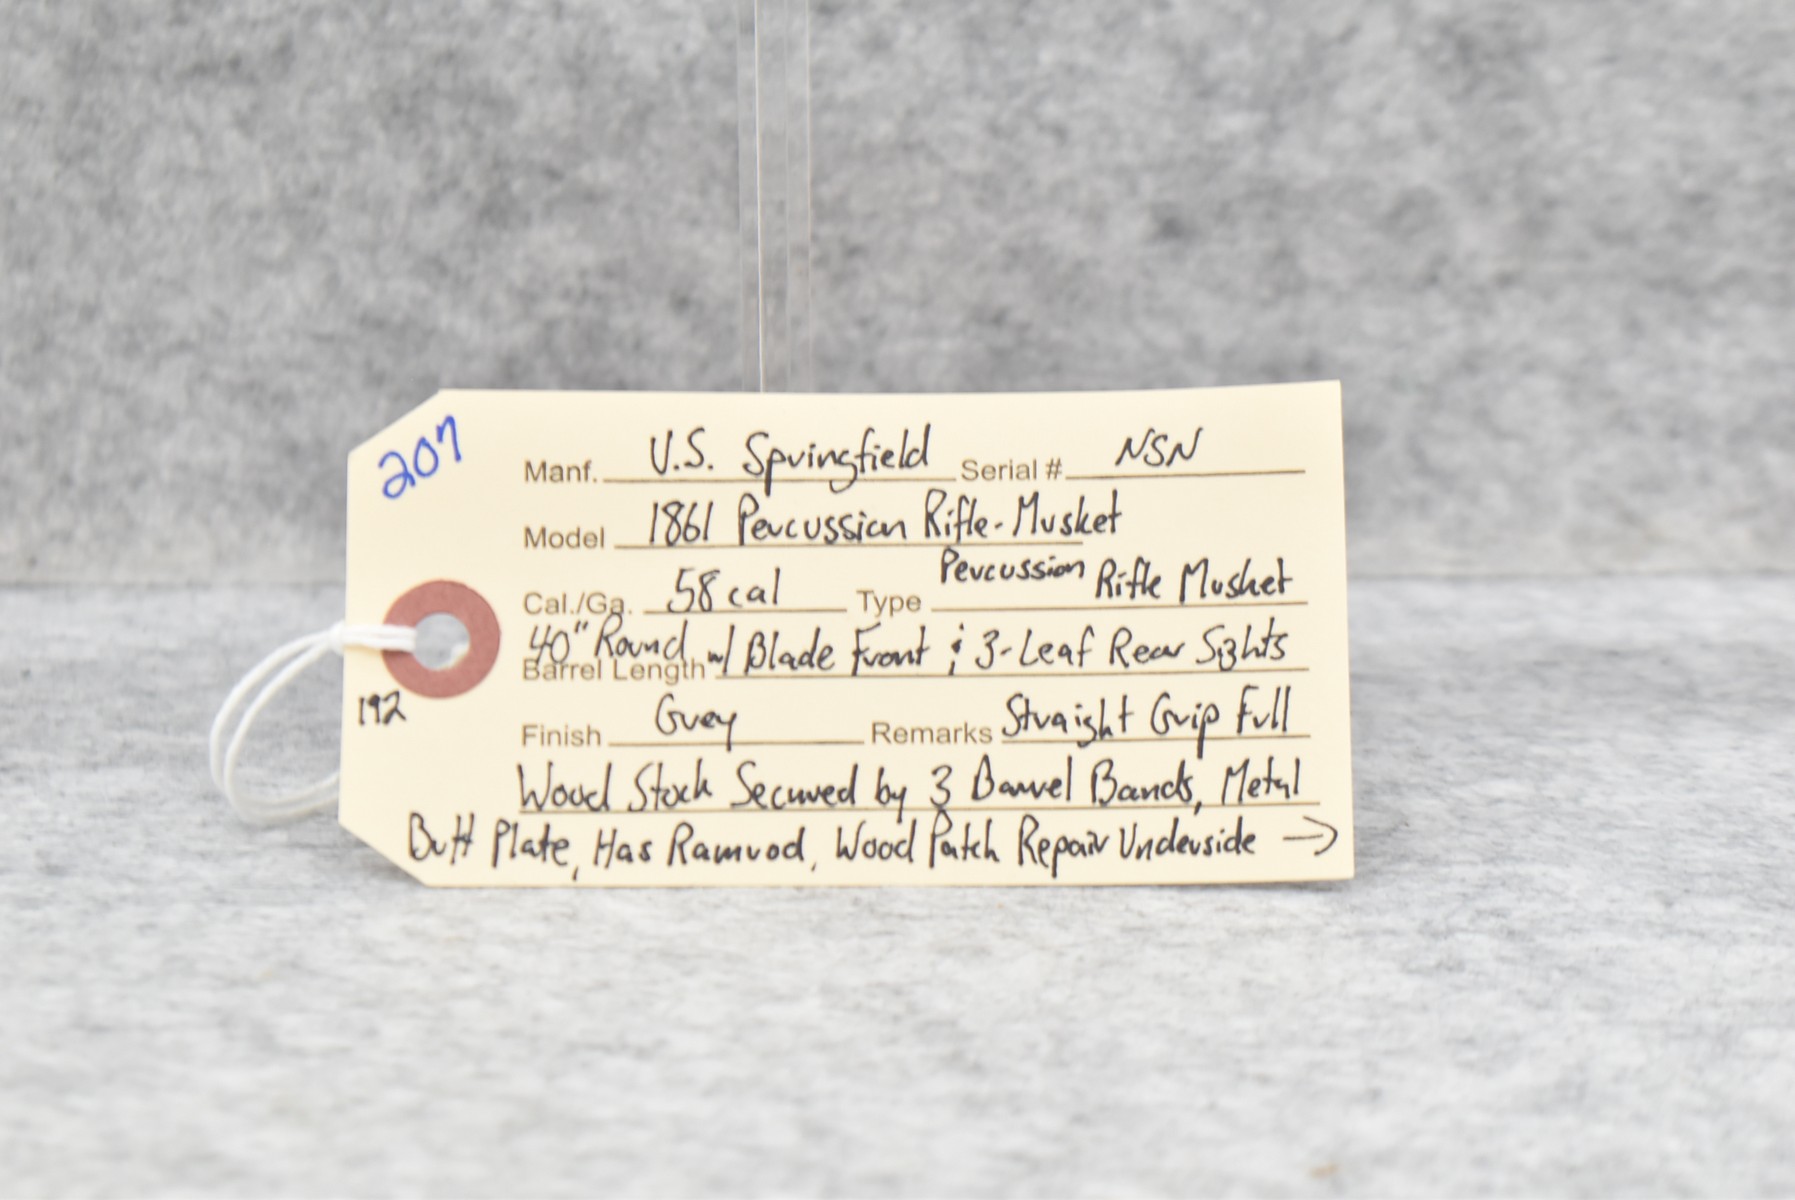 207
Manf. U.S. Springfield Serial # NSN
Model 1861 Percussion Rifle-Musket
Cal./Ga. 58 cal Type Percussion Rifle Musket
Barrel Length 40" Round w/ Blade Front & 3-Leaf Rear Sights
192
Finish Grey Remarks Straight Grip Full
Wood Stock Secured by 3 Barrel Bands, Metal
Butt Plate, Has Ramrod, Wood Patch Repair Underside →